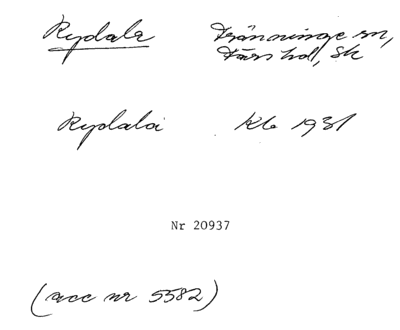 Rydala Tranninge sn,
Färs hd, Sk
Rydala Kb 1931
Nr 20937
(acc nr 5582)